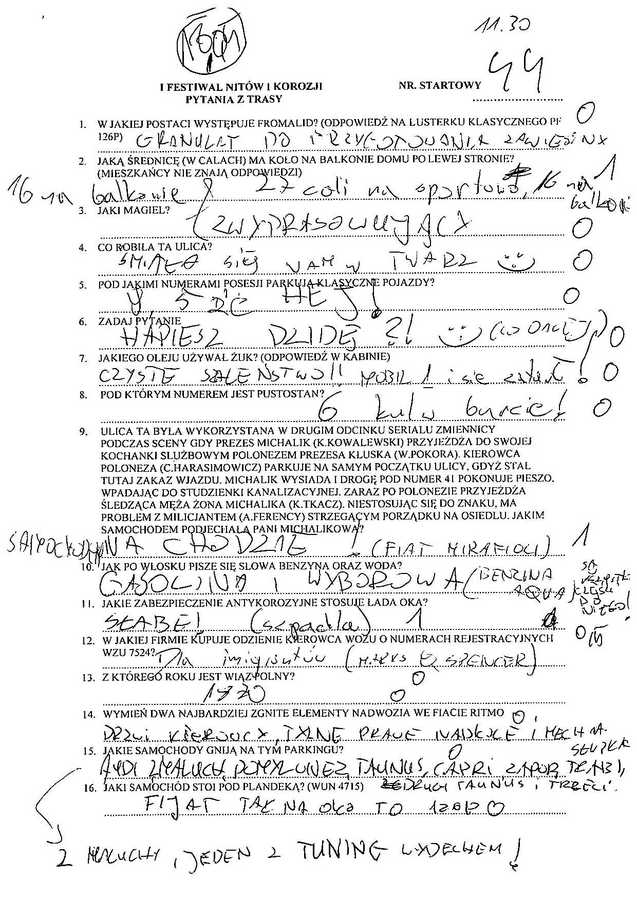 11.30
I FESTIWAL NITÓW I KOROZJI
PYTANIA Z TRASY
NR. STARTOWY 44
1. W JAKIEJ POSTACI WYSTĘPUJE FROMALID? (ODPOWIEDŹ NA LUSTERKU KLASYCZNEGO PF 126P) 0
GRANULAT DO PRZYGOTOWANIA ZAWIESINY
2. JAKĄ ŚREDNICĘ (W CALACH) MA KOŁO NA BALKONIE DOMU PO LEWEJ STRONIE?
(MIESZKAŃCY NIE ZNAJĄ ODPOWIEDZI) 1
16 na balkonie 27 coli na sportowo, 16 na balkonie
3. JAKI MAGIEL? 0
ZWYPRASOWUJĄCY
4. CO ROBIŁA TA ULICA? 0
ŚMIAŁA SIĘ NAM W TWARZ
5. POD JAKIMI NUMERAMI POSESJI PARKUJĄ KLASYCZNE POJAZDY? 0
HEJ!
6. ZADAJ PYTANIE 0
HAPIESZ DZIDĘ?!
7. JAKIEGO OLEJU UŻYWAŁ ŻUK? (ODPOWIEDŹ W KABINIE) 0
CZYSTE SZALEŃSTWO!! MOBIL 1 i się
8. POD KTÓRYM NUMEREM JEST PUSTOSTAN? 0
6 kul w burcie!
9. ULICA TA BYŁA WYKORZYSTANA W DRUGIM ODCINKU SERIALU ZMIENNICY
PODCZAS SCENY GDY PREZES MICHALIK (K.KOWALEWSKI) PRZYJEŻDŻA DO SWOJEJ
KOCHANKI SŁUŻBOWYM POLONEZEM PREZESA KŁUSKA (W.POKORA). KIEROWCA
POLONEZA (C.HARASIMOWICZ) PARKUJE NA SAMYM POCZĄTKU ULICY, GDYŻ STAŁ
TUTAJ ZAKAZ WJAZDU. MICHALIK WYSIADA I DROGĘ POD NUMER 41 POKONUJE PIESZO,
WPADAJĄC DO STUDZIENKI KANALIZACYJNEJ. ZARAZ PO POLONEZIE PRZYJEŻDŻA
ŚLEDZĄCA MĘŻA ŻONA MICHALIKA (K.TKACZ). NIESTOSUJĄC SIĘ DO ZNAKU, MA
PROBLEM Z MILICJANTEM (A.FERENCY) STRZEGĄCYM PORZĄDKU NA OSIEDLU. JAKIM
SAMOCHODEM PODJECHAŁA PANI MICHALIKOWA? 1
SAMOCHODEM NA CHODZIE (FIAT MIRAFIOLI)
10. JAK PO WŁOSKU PISZE SIĘ SŁOWA BENZYNA ORAZ WODA?
GASOLINA I WYBOROWA (BENZINA AQUA)
11. JAKIE ZABEZPIECZENIE ANTYKOROZYJNE STOSUJE ŁADA OKA?
SŁABE! (szpachla) 1
12. W JAKIEJ FIRMIE KUPUJE ODZIENIE KIEROWCA WOZU O NUMERACH REJESTRACYJNYCH
WZU 7524? Dla imigrantów (MARKS & SPENCER)
13. Z KTÓREGO ROKU JEST WIĄZ POLNY? 0
1970 0
14. WYMIEŃ DWA NAJBARDZIEJ ZGNITE ELEMENTY NADWOZIA WE FIACIE RITMO 0
DRZWI KIEROWCY, TYLNE PRAWE NADKOLE I MECH NA
15. JAKIE SAMOCHODY GNIJĄ NA TYM PARKINGU? 0
AUDI 2 MALUCH, TAUNUS, CAPRI, ZAPOR, TRABI,
DRUGI TAUNUS I TRZECI.
16. JAKI SAMOCHÓD STOI POD PLANDEKĄ? (WUN 4715)
FIJAT TAK NA OKO TO 0
2 MALUCHY, JEDEN Z TUNING WYDECHEM!